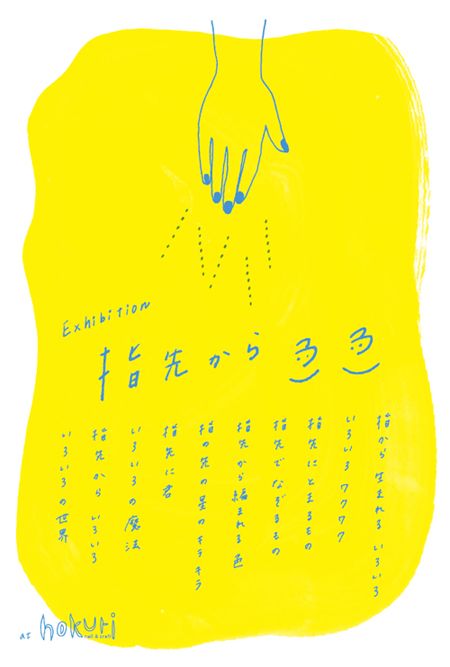 Exhibition
指先から いろいろ
指から 生まれる いろいろ
いろいろ ワクワク
指先にとまるもの
指先でなぞるもの
指先から編まれる色
指の先の星のキラキラ
指先に君
いろいろの魔法
指先から いろいろ
いろいろの世界
at hokuri
nail & craft